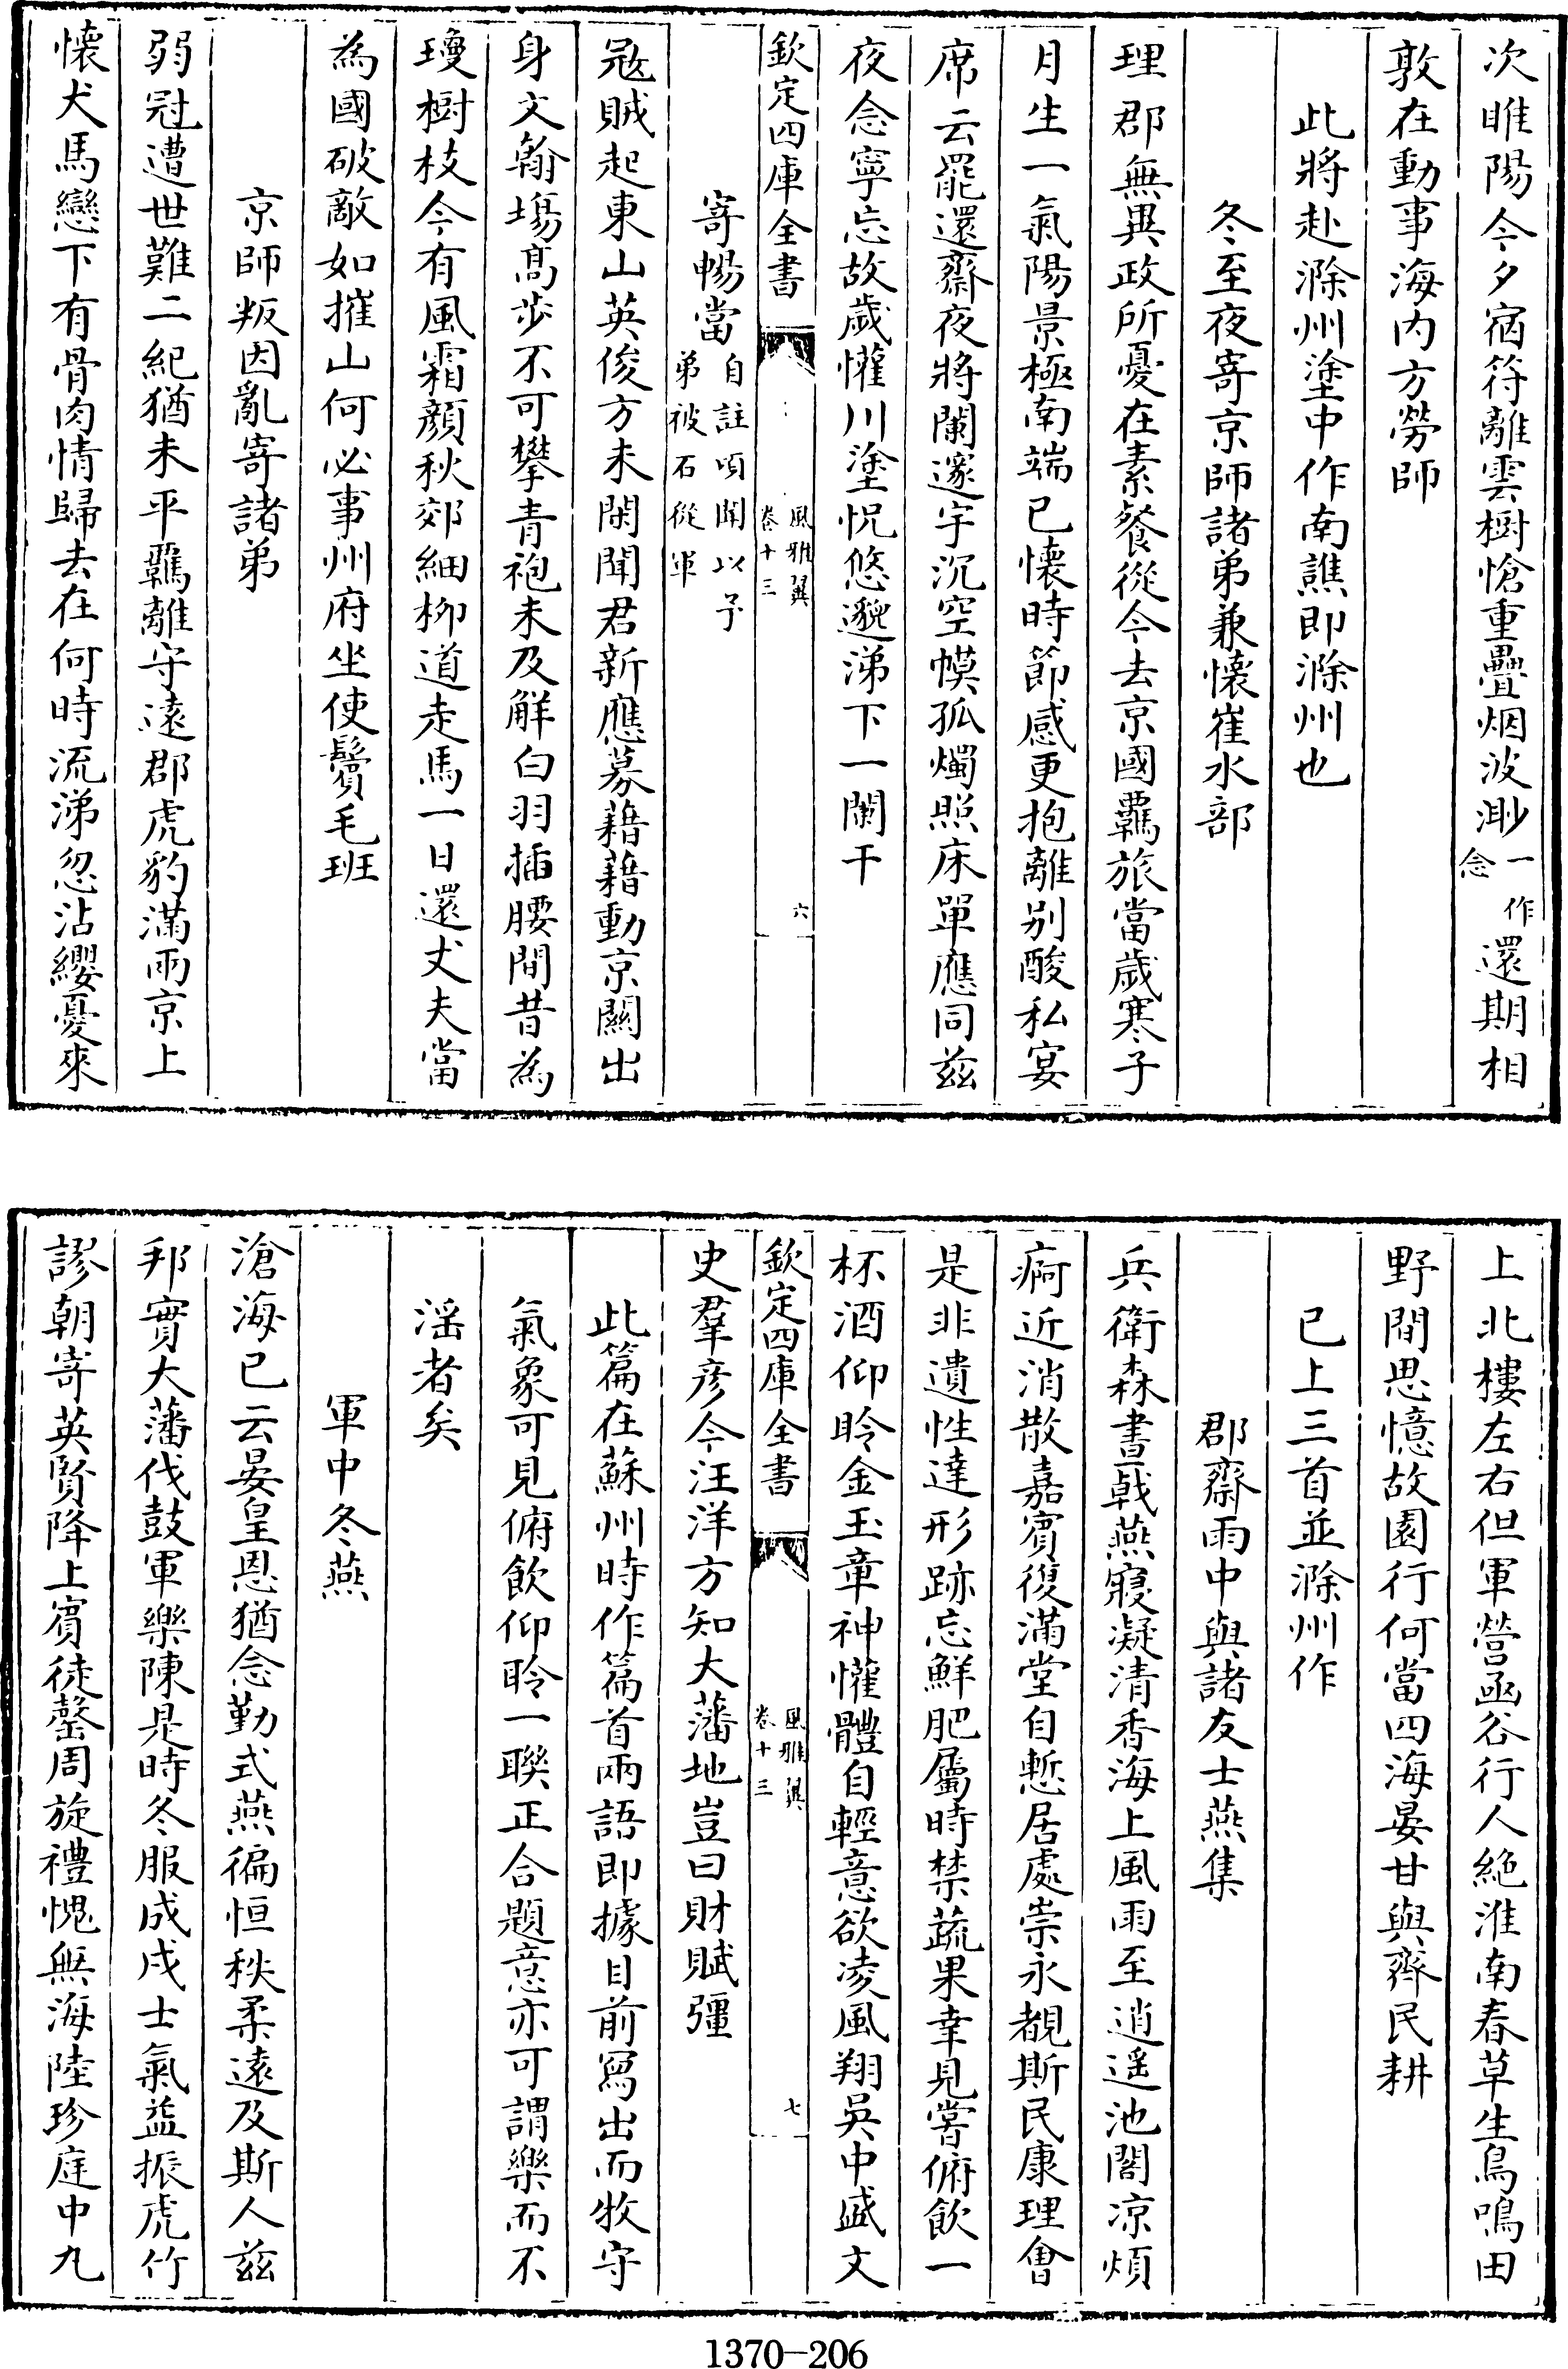 次睢陽今夕宿符離雲樹愴重疊烟波渺一作念還期相
敦在動事海内方勞師
此將赴滁州塗中作南譙即滁州也
冬至夜寄京師諸弟兼懷崔水部
理郡無異政所憂在素餐從今去京國羈旅當歲寒子
月生一氣陽景極南端已懷時節感更抱離别酸私宴
席云罷還齋夜將闌邃宇沉空幙孤燭照床單應同兹
夜念寧忘故歲懽川塗怳悠邈涕下一闌干
欽定四庫全書
風雅翼
卷十三
六
寄暢當自註頃聞以子弟被石從軍
冦賊起東山英俊方未閑聞君新應募藉藉動京闗出
身文翰塲髙步不可攀青袍未及解白羽插腰間昔為
瓊樹枝今有風霜顔秋郊細柳道走馬一日還丈夫當
為國破敵如摧山何必事州府坐使鬢毛班
京師叛因亂寄諸弟
弱冠遭世難二紀猶未平羈離守遠郡虎豹滿兩京上
懷犬馬戀下有骨肉情歸去在何時流涕忽沾纓憂來
上北樓左右但軍營函谷行人絶淮南春草生鳥鳴田
野間思憶故園行何當四海晏甘與齊民耕
已上三首並滁州作
郡齋雨中與諸友士燕集
兵衛森畫戟燕寢凝清香海上風雨至逍遥池閣凉煩
痾近消散嘉賓復滿堂自慙居處崇永覩斯民康理會
是非遺性達形跡忘鮮肥屬時禁蔬果幸見嘗俯飲一
杯酒仰聆金玉章神懽體自輕意欲凌風翔吳中盛文
欽定四庫全書
風雅翼
卷十三
七
史羣彦今汪洋方知大藩地豈曰財賦彊
此篇在蘇州時作篇首兩語即據目前冩出而牧守
氣象可見俯飲仰聆一聯正合題意亦可謂樂而不
滛者矣
軍中冬燕
滄海已云晏皇恩猶念勤式燕徧恒秩柔遠及斯人兹
邦實大藩伐鼓軍樂陳是時冬服成戌士氣益振虎竹
謬朝寄英賢降上賓徒罄周旋禮愧無海陸珍庭中丸
1370-206